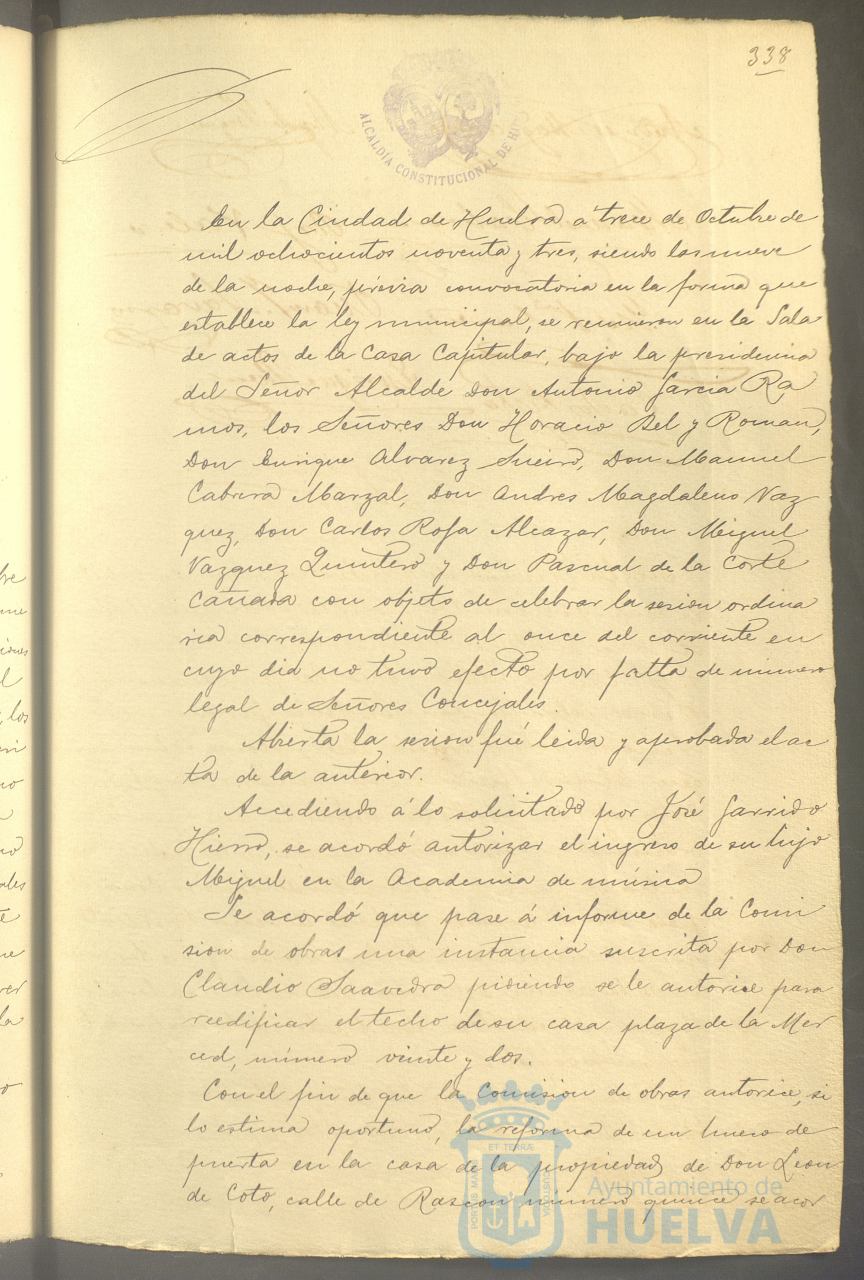 338
ALCALDÍA CONSTITUCIONAL DE HU
En la Ciudad de Huelva a trece de Octubre de
mil ochocientos noventa y tres, siendo las nueve
de la noche, prévia convocatoria en la forma que
establece la ley municipal, se reunieron en la Sala
de actos de la Casa Capitular, bajo la presidencia
del Señor Alcalde Don Antonio Garcia Ra
mos, los Señores Don Horacio Bel y Roman,
Don Enrique Alvarez Sueiro, Don Manuel
Cabrera Marzal, Don Andres Magdaleno Vaz
quez, Don Carlos Rofa Alcazar, Don Miguel
Vazquez Quintero y Don Pascual de la Corte
Cañada con objeto de celebrar la sesion ordina
ria correspondiente al once del corriente en
cuyo dia no tuvo efecto por falta de número
legal de Señores Concejales.
Abierta la sesion fué leida y aprobada el ac
ta de la anterior.
Accediendo á lo solicitado por José Garrido
Hierro, se acordó autorizar el ingreso de su hijo
Miguel en la Academia de música
Se acordó que pase á informe de la Comi
sion de obras una instancia suscrita por Don
Claudio Saavedra pidiendo se le autorice para
reedificar el techo de su casa plaza de la Mer
ced, número veinte y dos.
Con el fin de que la Comision de obras autorice, si
lo estima oportuno, la reforma de un hueco de
puerta en la casa de la propiedad de Don Leon
de Coto, calle de Rascon número quince se acor
ET TERRÆ
PORTUS MARIS
CUSTODIA
Ayuntamiento de
HUELVA